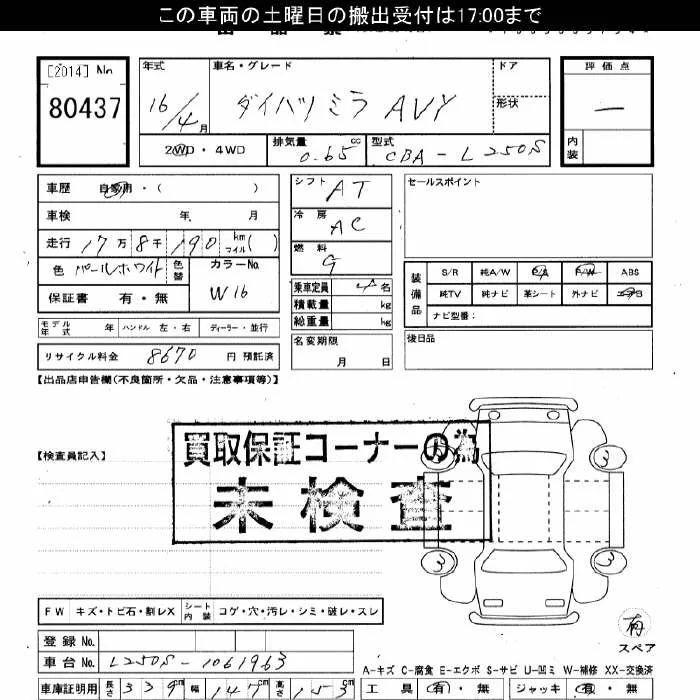 この車両の土曜日の搬出受付は17:00まで
[2014] No.
80437
年式 16/4月
車名・グレード ダイハツ ミラ AVY
ドア
形状
評価点 —
内装
2WD・4WD
排気量 0.65 cc
型式 CBA-L250S
車歴 自家用・( )
車検 年 月
走行 17万8千190 km マイル( )
色 パールホワイト 色替 カラーNo. W16
保証書 有・無
モデル年式 年 ハンドル 左・右 ディーラー・並行
リサイクル料金 8670 円 預託済
シフト AT
冷房 AC
燃料 G
乗車定員 4名
積載量 kg
総重量 kg
名変期限 月 日
セールスポイント
装備品
S/R 純A/W P/S P/W ABS
純TV 純ナビ 革シート 外ナビ エアB
ナビ型番:
後日品
【出品店申告欄(不良箇所・欠品・注意事項等)】
【検査員記入】
買取保証コーナーの為
未検査
3
3
3
3
FW キズ・トビ石・割レX シート内装 コゲ・穴・汚レ・シミ・破レ・スレ
有
スペア
登録 No.
車台 No. L250S-1061963
A-キズ C-腐食 E-エクボ S-サビ U-凹ミ W-補修 XX-交換済
車庫証明用 長さ 339cm 幅 147cm 高さ 153cm
工具 有・無 ジャッキ 有・無